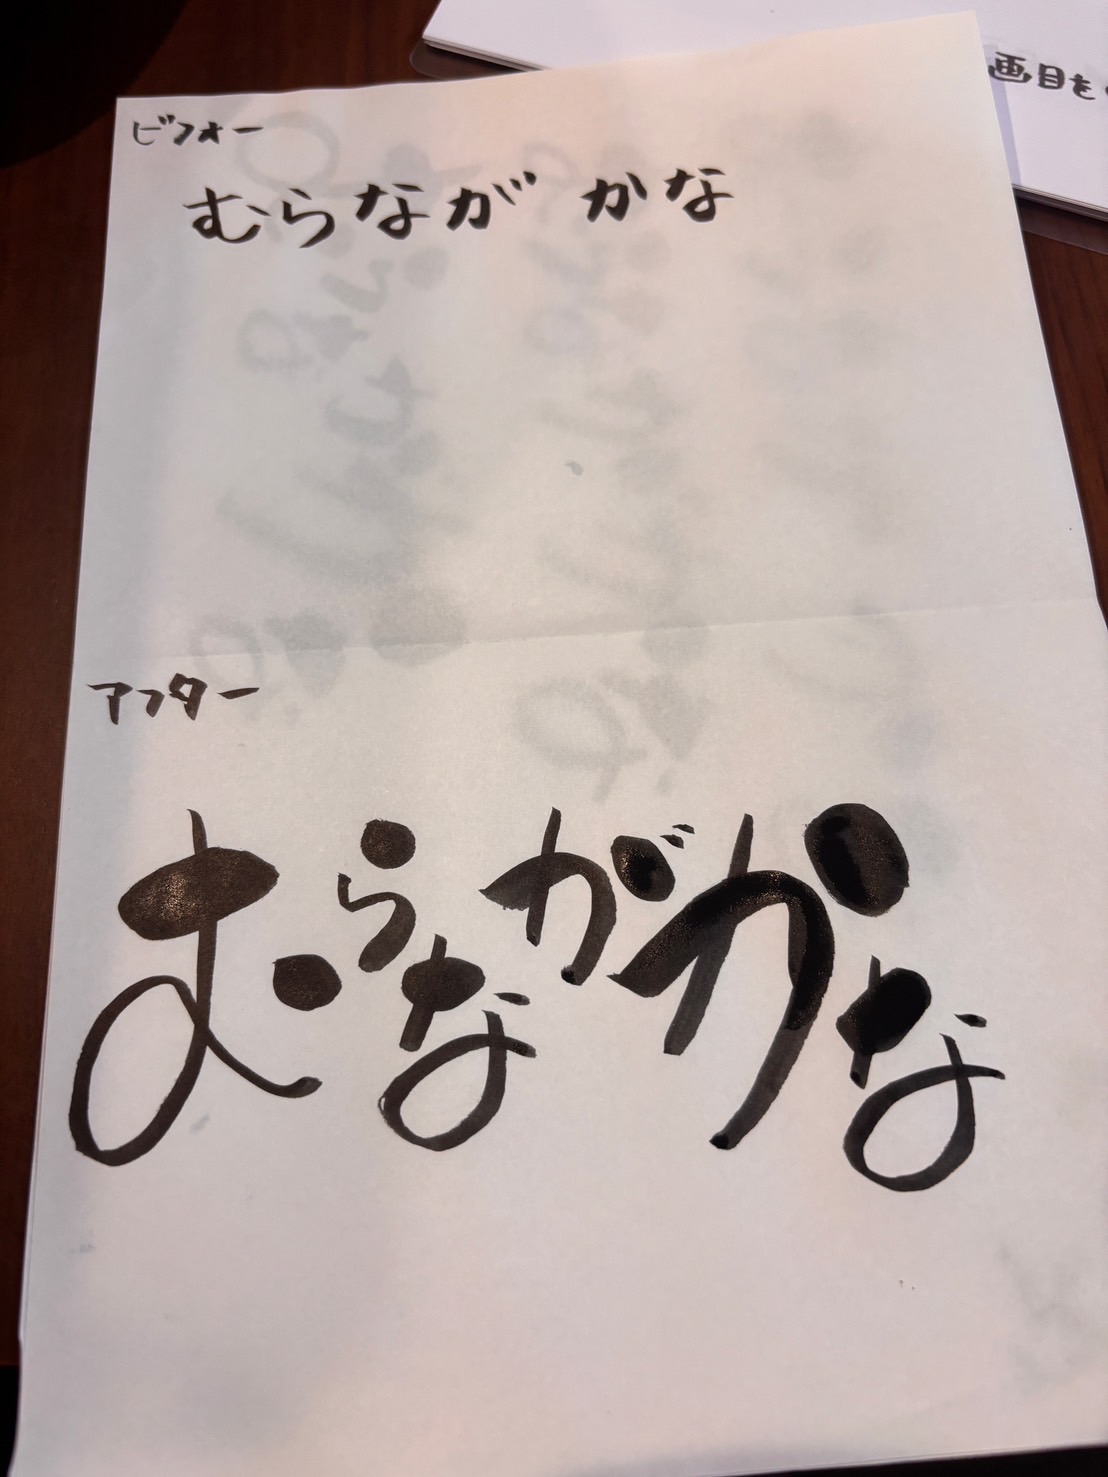 画目を
ビフォー
むらながかな
アフター
むらながかな